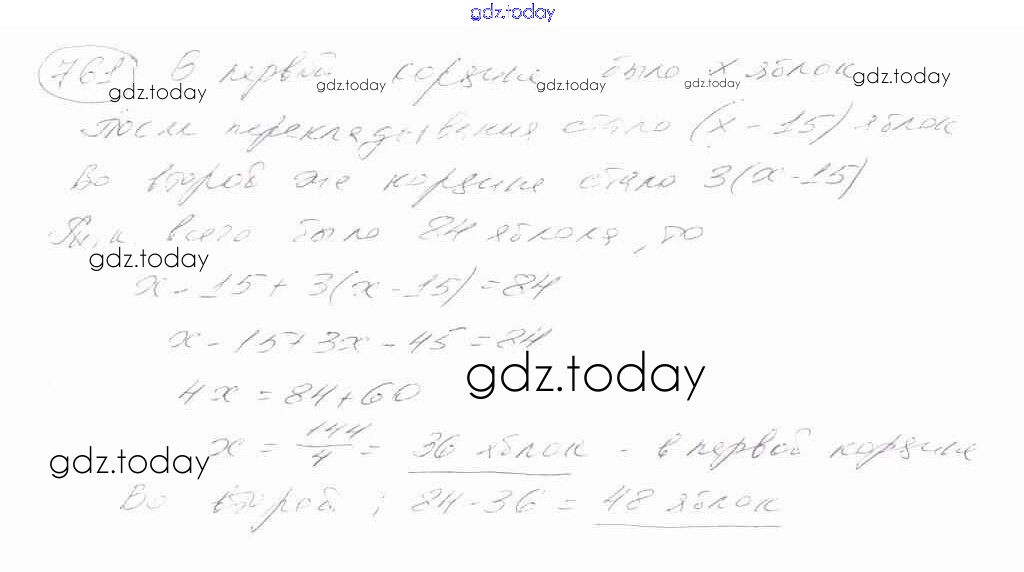 gdz.today
761 В первой корзине было x яблок
gdz.today gdz.today gdz.today gdz.today gdz.today
После перекладывания стало (x - 15) яблок
Во второй же корзине стало 3(x - 15)
Т.к. всего было 84 яблока, то
gdz.today
x - 15 + 3(x - 15) = 84
x - 15 + 3x - 45 = 84
gdz.today
4x = 84 + 60
x = 144/4 = 36 яблок - в первой корзине
gdz.today
Во второй; 84 - 36 = 48 яблок